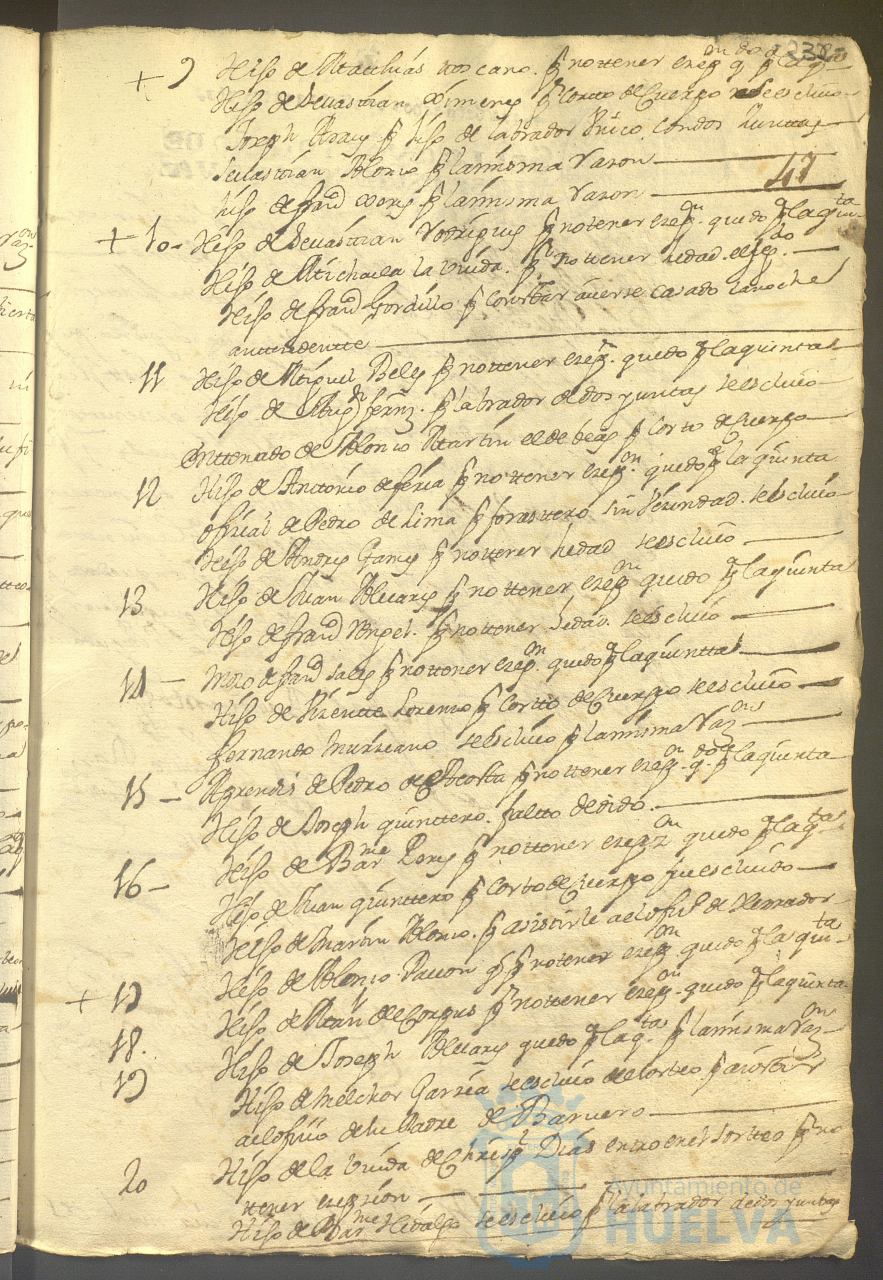 + 9 Hijo de Matthias no tener exepn qdo pa la qta
Hijo de Sevastian Ximenes pr Corto de Cuerpo se escluio
Joseph pr hijo de labrador con dos Yuntas
Sevastian Alonso pr la misma Razon
47
hijo de franco pr la misma Razon
+ 10 - Hijo de Sevastian Rodrigues pr no tener exepn. quedo pa la qta
Hijo de Michaela la viuda. pr no tener hedad. escluido
Hijo de franco Gordillo pr Constar averse casado la noche
anttendentte
11 Hijo de Miguel Peles pr no ttener exepn. quedo pa la quinta
Hijo de pr labrador de dos yuntas se escluio
Enttenado de Alonso Martin el de beas pr Corto de Cuerpo
12 Hijo de Antonio de feria pr no ttener exepn. quedo pa la quinta
ofisial de Pedro de Lima pr forasttero sin Vesindad. se escluio
Hijo de Andres Garces pr no ttener hedad se escluio
13 Hijo de Juan Alvares pr no ttener exepn quedo pa la quinta
Hijo de franco Angel. pr no ttener hedad. se escluio
14 - Mozo de franco Sales pr no ttener exepn. quedo pa la quintta
Hijo de Visentte Lorenzo pr Cortto de Cuerpo se escluio
fernando Mursiano se escluio pr la misma Razon
15 - Aprendis de Pedro de Acosta pr no ttener exepn. qdo. pa la quinta
Hijo de Joseph quinttero. falto de dedo.
16 - Hijo de Barme Peres pr no ttener exepn quedo pa la qta
Hijo de Juan quinttero pr Corto de Cuerpo fue escluido
Hijo de Martin Alonso. pr asistirle a el ofisio de Herrador
Hijo de Alonso Pavon pr no tener exepn. quedo pa la quinta
+ 17 Hijo de Martn de Corpus pr no ttener exepn. quedo pa la quinta
18. Hijo de Joseph Alvares quedo pa la qta. pr la misma Razon
19 Hijo de Melchor Garsia se escluio de el sorteo pr asistir
a el ofisio de su Padre de Barvero
20 Hijo de la viuda de Chrisptl Dias entro en el sortteo pr no
ttener exepsion
Hijo de Barme Hidalgo se escluio pr labrador de dos yuntas
Ayuntamiento de
HUELVA